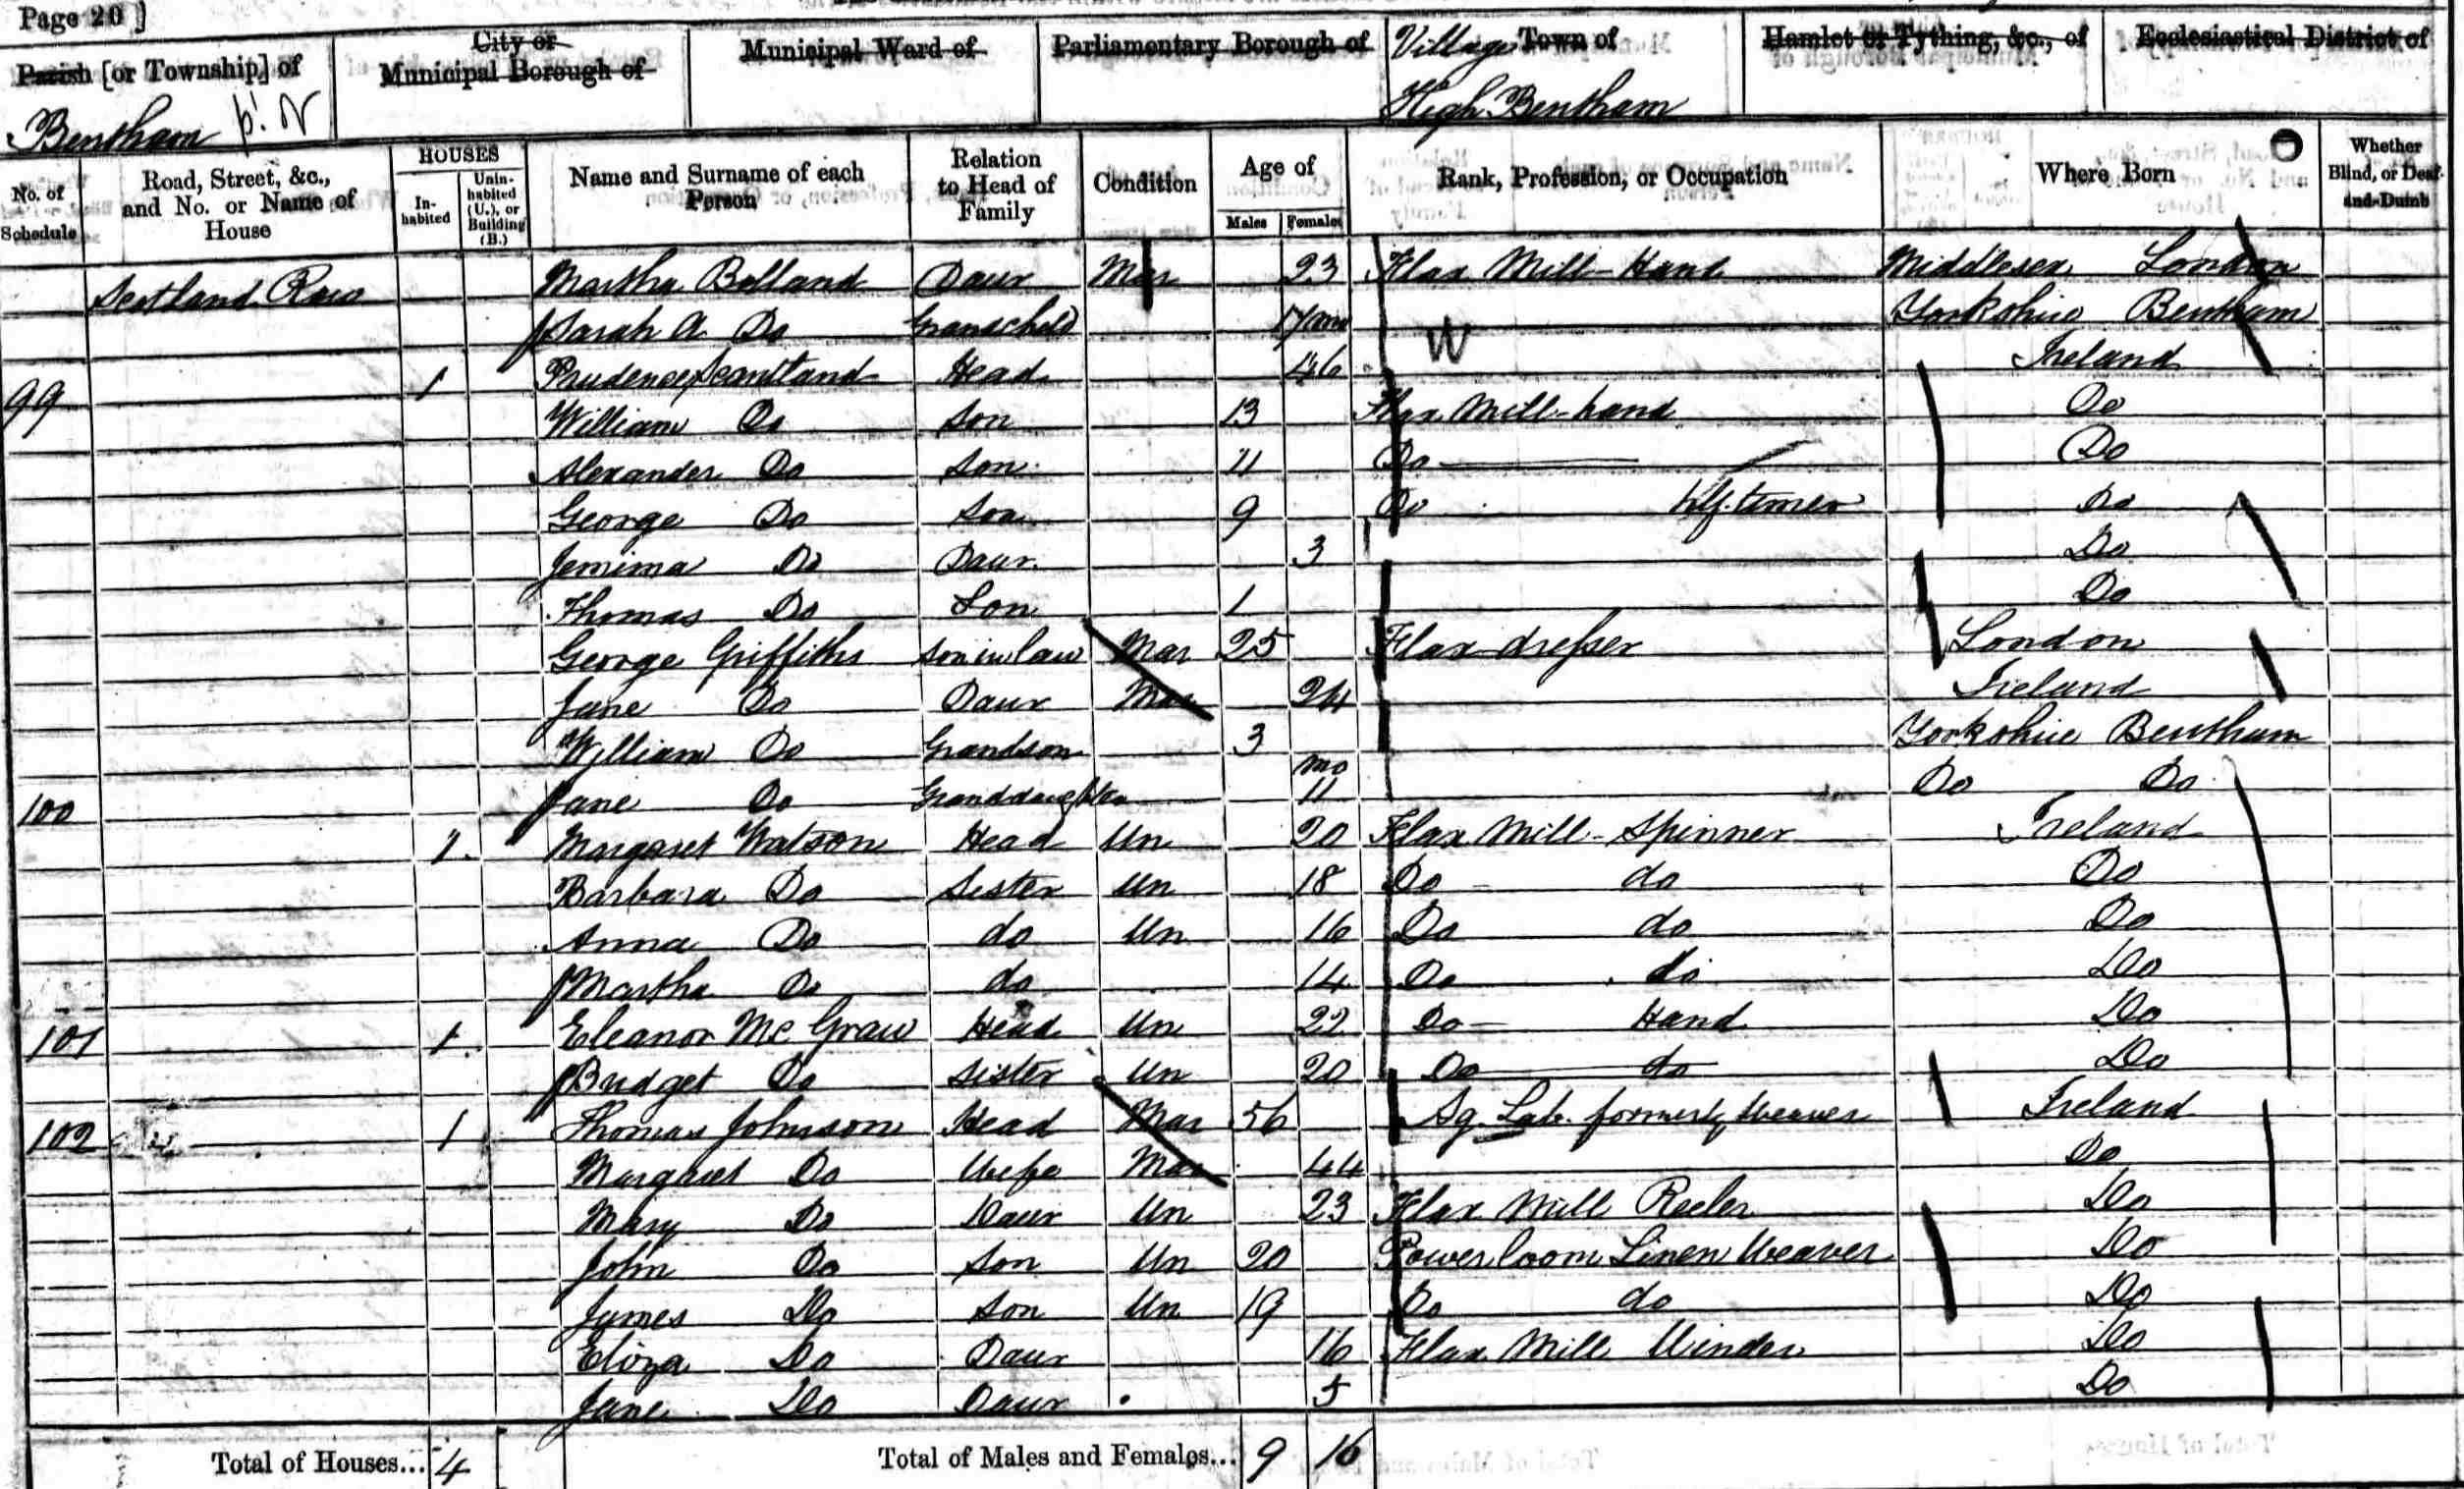 Page 20 ]
Parish [or Township] of
Bentham
City or
Municipal Borough of
Municipal Ward of
Parliamentary Borough of
Village Town of
High Bentham
Hamlet or Tything, &c., of
Ecclesiastical District of
No. of Schedule
Road, Street, &c., and No. or Name of House
HOUSES
In-habited
Unin-habited (U.), or Building (B.)
Name and Surname of each Person
Relation to Head of Family
Condition
Age of
Males
Females
Rank, Profession, or Occupation
Where Born
Whether Blind, or Deaf-and-Dumb
Scotland Row Martha Bolland Daur Mar 23 Flax Mill-Hand Middlesex London
Sarah A Do Grandchild Yorkshire Bentham
99 1 Prudence Scantland Head W 46 Ireland
William Do Son 13 Flax Mill-hand Do
Alexander Do Son 11 Do Do
George Do Son 9 Do hlf. timer Do
Jemima Do Daur. 3 Do
Thomas Do Son 1 Do
George Griffiths Son in law Mar 25 Flax dresser London
Jane Do Daur Mar 24 Ireland
William Do Grandson 3 Yorkshire Bentham
Jane Do Granddaughter mo 11 Do Do
100 1 Margaret Watson Head Un 20 Flax Mill-Spinner Ireland
Barbara Do Sister Un 18 Do do Do
Anna Do do Un 16 Do do Do
Martha Do do 14 Do do Do
101 1 Eleanor Mc Graw Head Un 22 Do Hand Do
Bridget Do Sister Un 20 Do do Do
102 1 Thomas Johnson Head Mar 56 Ag. Lab. formerly Weaver Ireland
Margaret Do Wife Mar 44 Do
Mary Do Daur Un 23 Flax Mill Reeler Do
John Do Son Un 20 Powerloom Linen Weaver Do
James Do Son Un 19 Do do Do
Eliza Do Daur 16 Flax Mill Winder Do
Jane Do Daur 5 Do
Total of Houses... 4
Total of Males and Females... 9 16